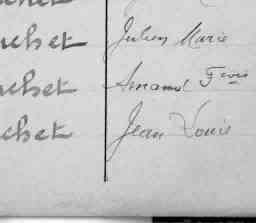 uchet Julien Marie
uchet Amand Fçois
uchet Jean Louis